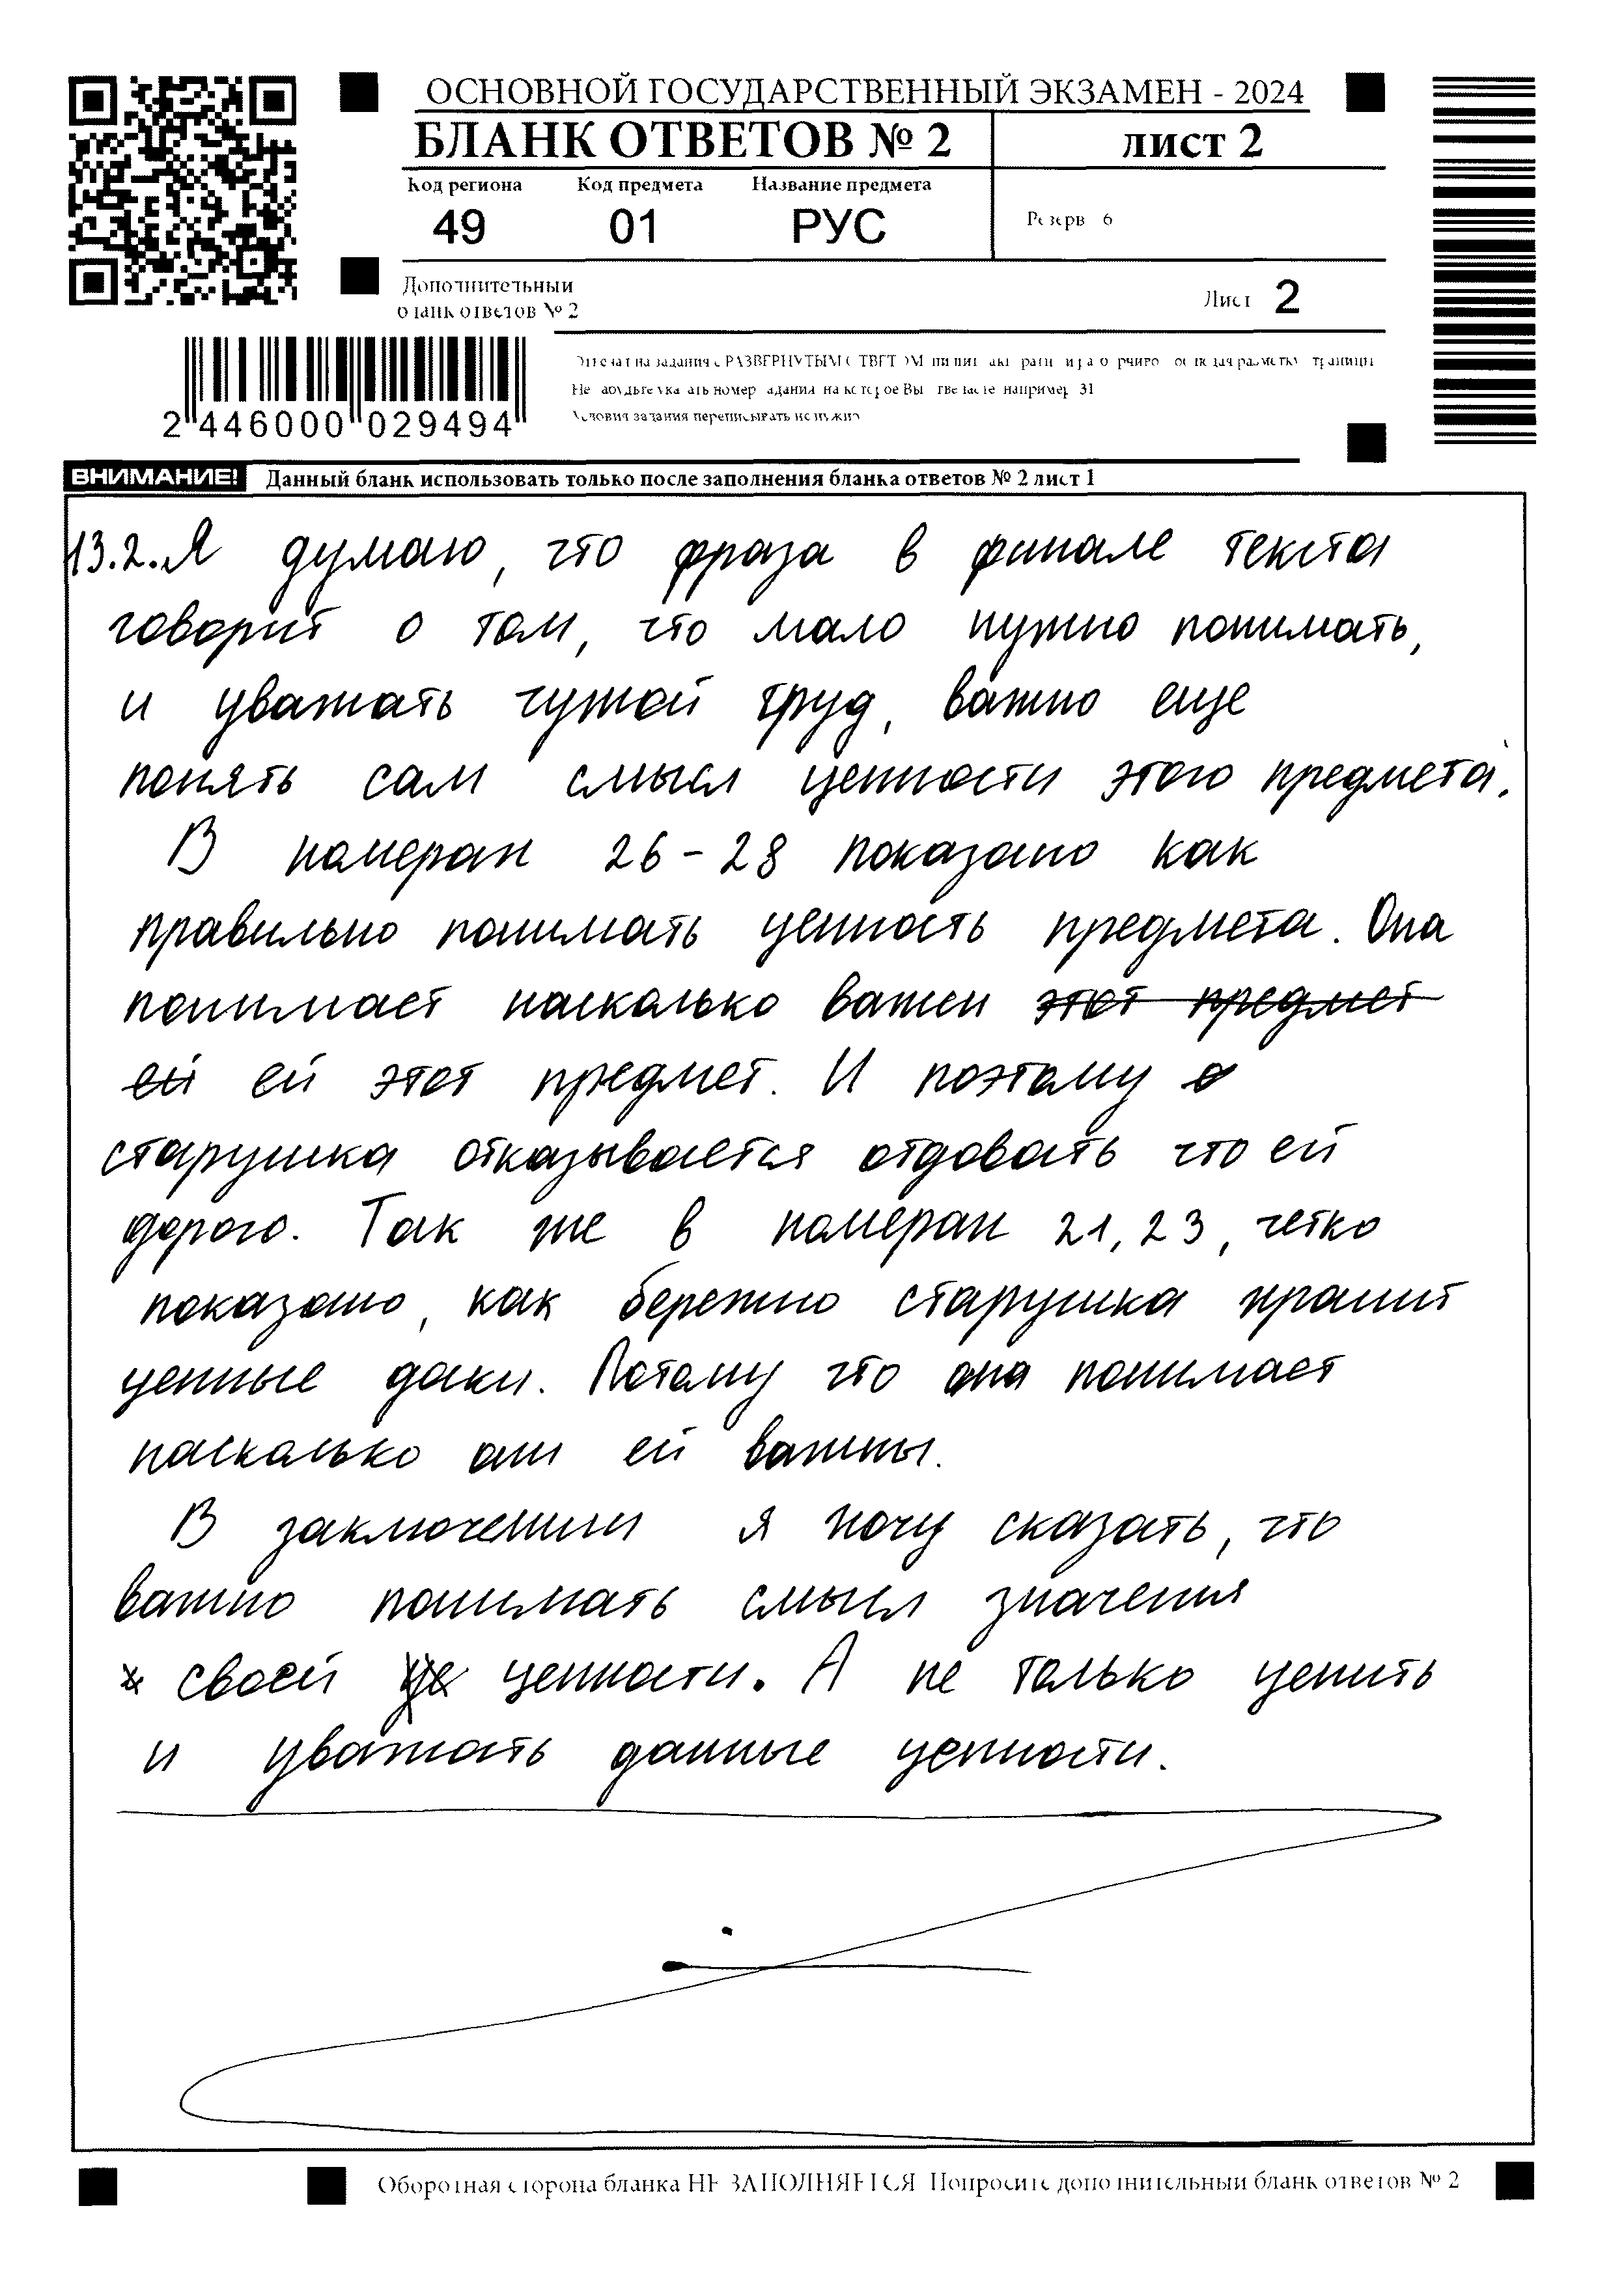 ОСНОВНОЙ ГОСУДАРСТВЕННЫЙ ЭКЗАМЕН - 2024
БЛАНК ОТВЕТОВ № 2
лист 2
Код региона Код предмета Название предмета
49 01 РУС
Резерв 6
Дополнительный
бланк ответов № 2
Лист 2
2 446000 029494
Условия задания переписывать не нужно
ВНИМАНИЕ! Данный бланк использовать только после заполнения бланка ответов № 2 лист 1
13.2. Я думаю, что фраза в финале текста
говорит о том, что мало нужно понимать,
и уважать чужой труд, важно еще
понять сам смысл ценности этого предмета.
В номерах 26-28 показано как
правильно понимать ценность предмета. Она
понимает насколько важен этот предмет
ей ей этот предмет. И поэтому о
старушка отказывается отдовать что ей
дорого. Так же в номерах 21, 23, четко
показано, как бережно старушка хранит
ценные даки. Потому что она понимает
насколько они ей важны.
В заключении я хочу сказать, что
важно понимать смысл значения
своей це ценности. А не только ценить
и уважать данные ценности.
Оборотная сторона бланка НЕ ЗАПОЛНЯЕТСЯ Попросите дополнительный бланк ответов № 2